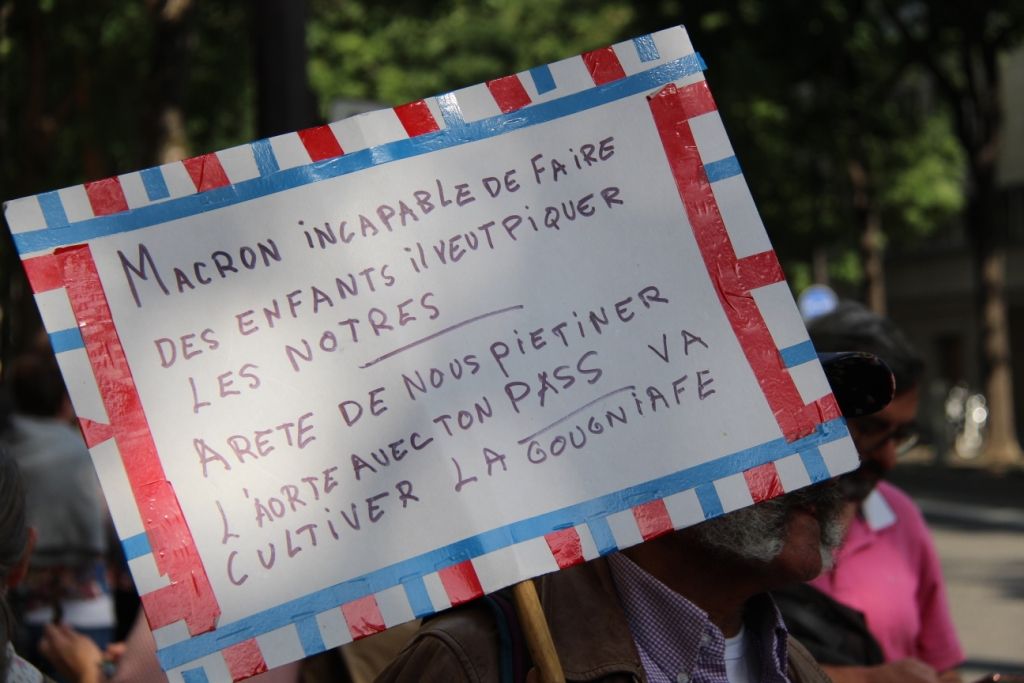 MACRON INCAPABLE DE FAIRE
DES ENFANTS il VEUT PIQUER
LES NOTRES
ARETE DE NOUS PIETINER
L'AORTE AVEC TON PASS VA
CULTIVER LA GOUGNIAFE